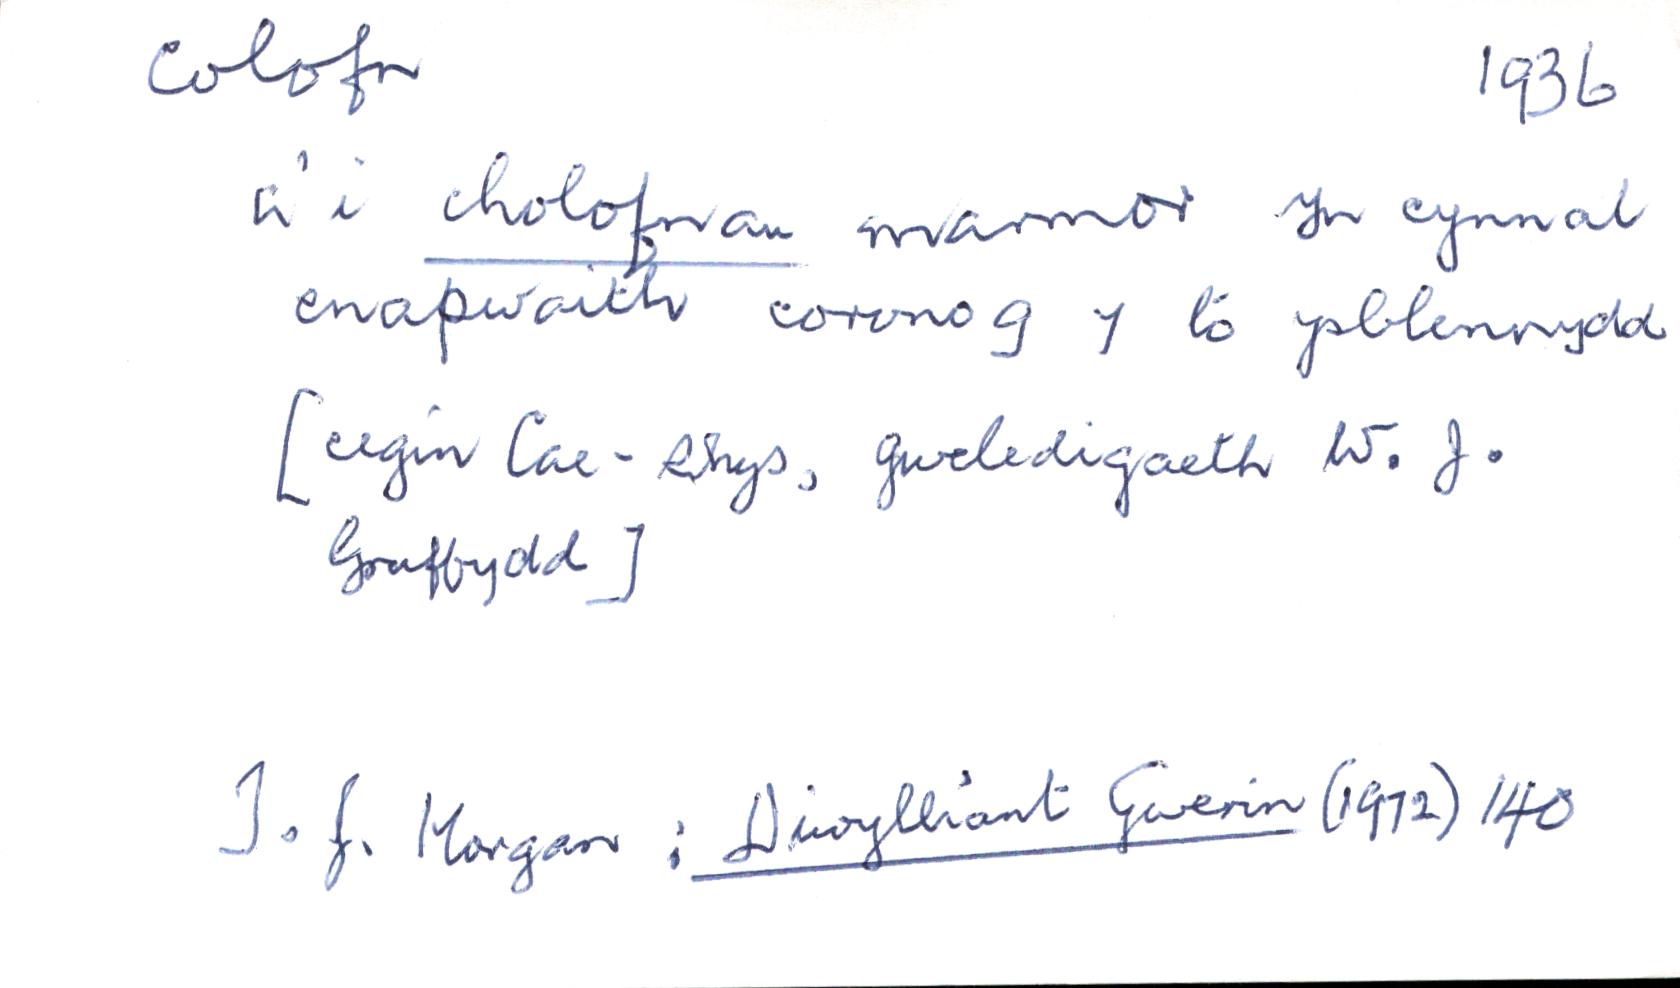 Colofn 1936
a'i cholofnau marmor yn cynnal
cnapwaith coronog y tô ysblennydd
[cegin Cae-Rhys, gweledigaeth W. J.
Gruffydd]
T. J. Morgan : Diwylliant Gwerin (1972) 140